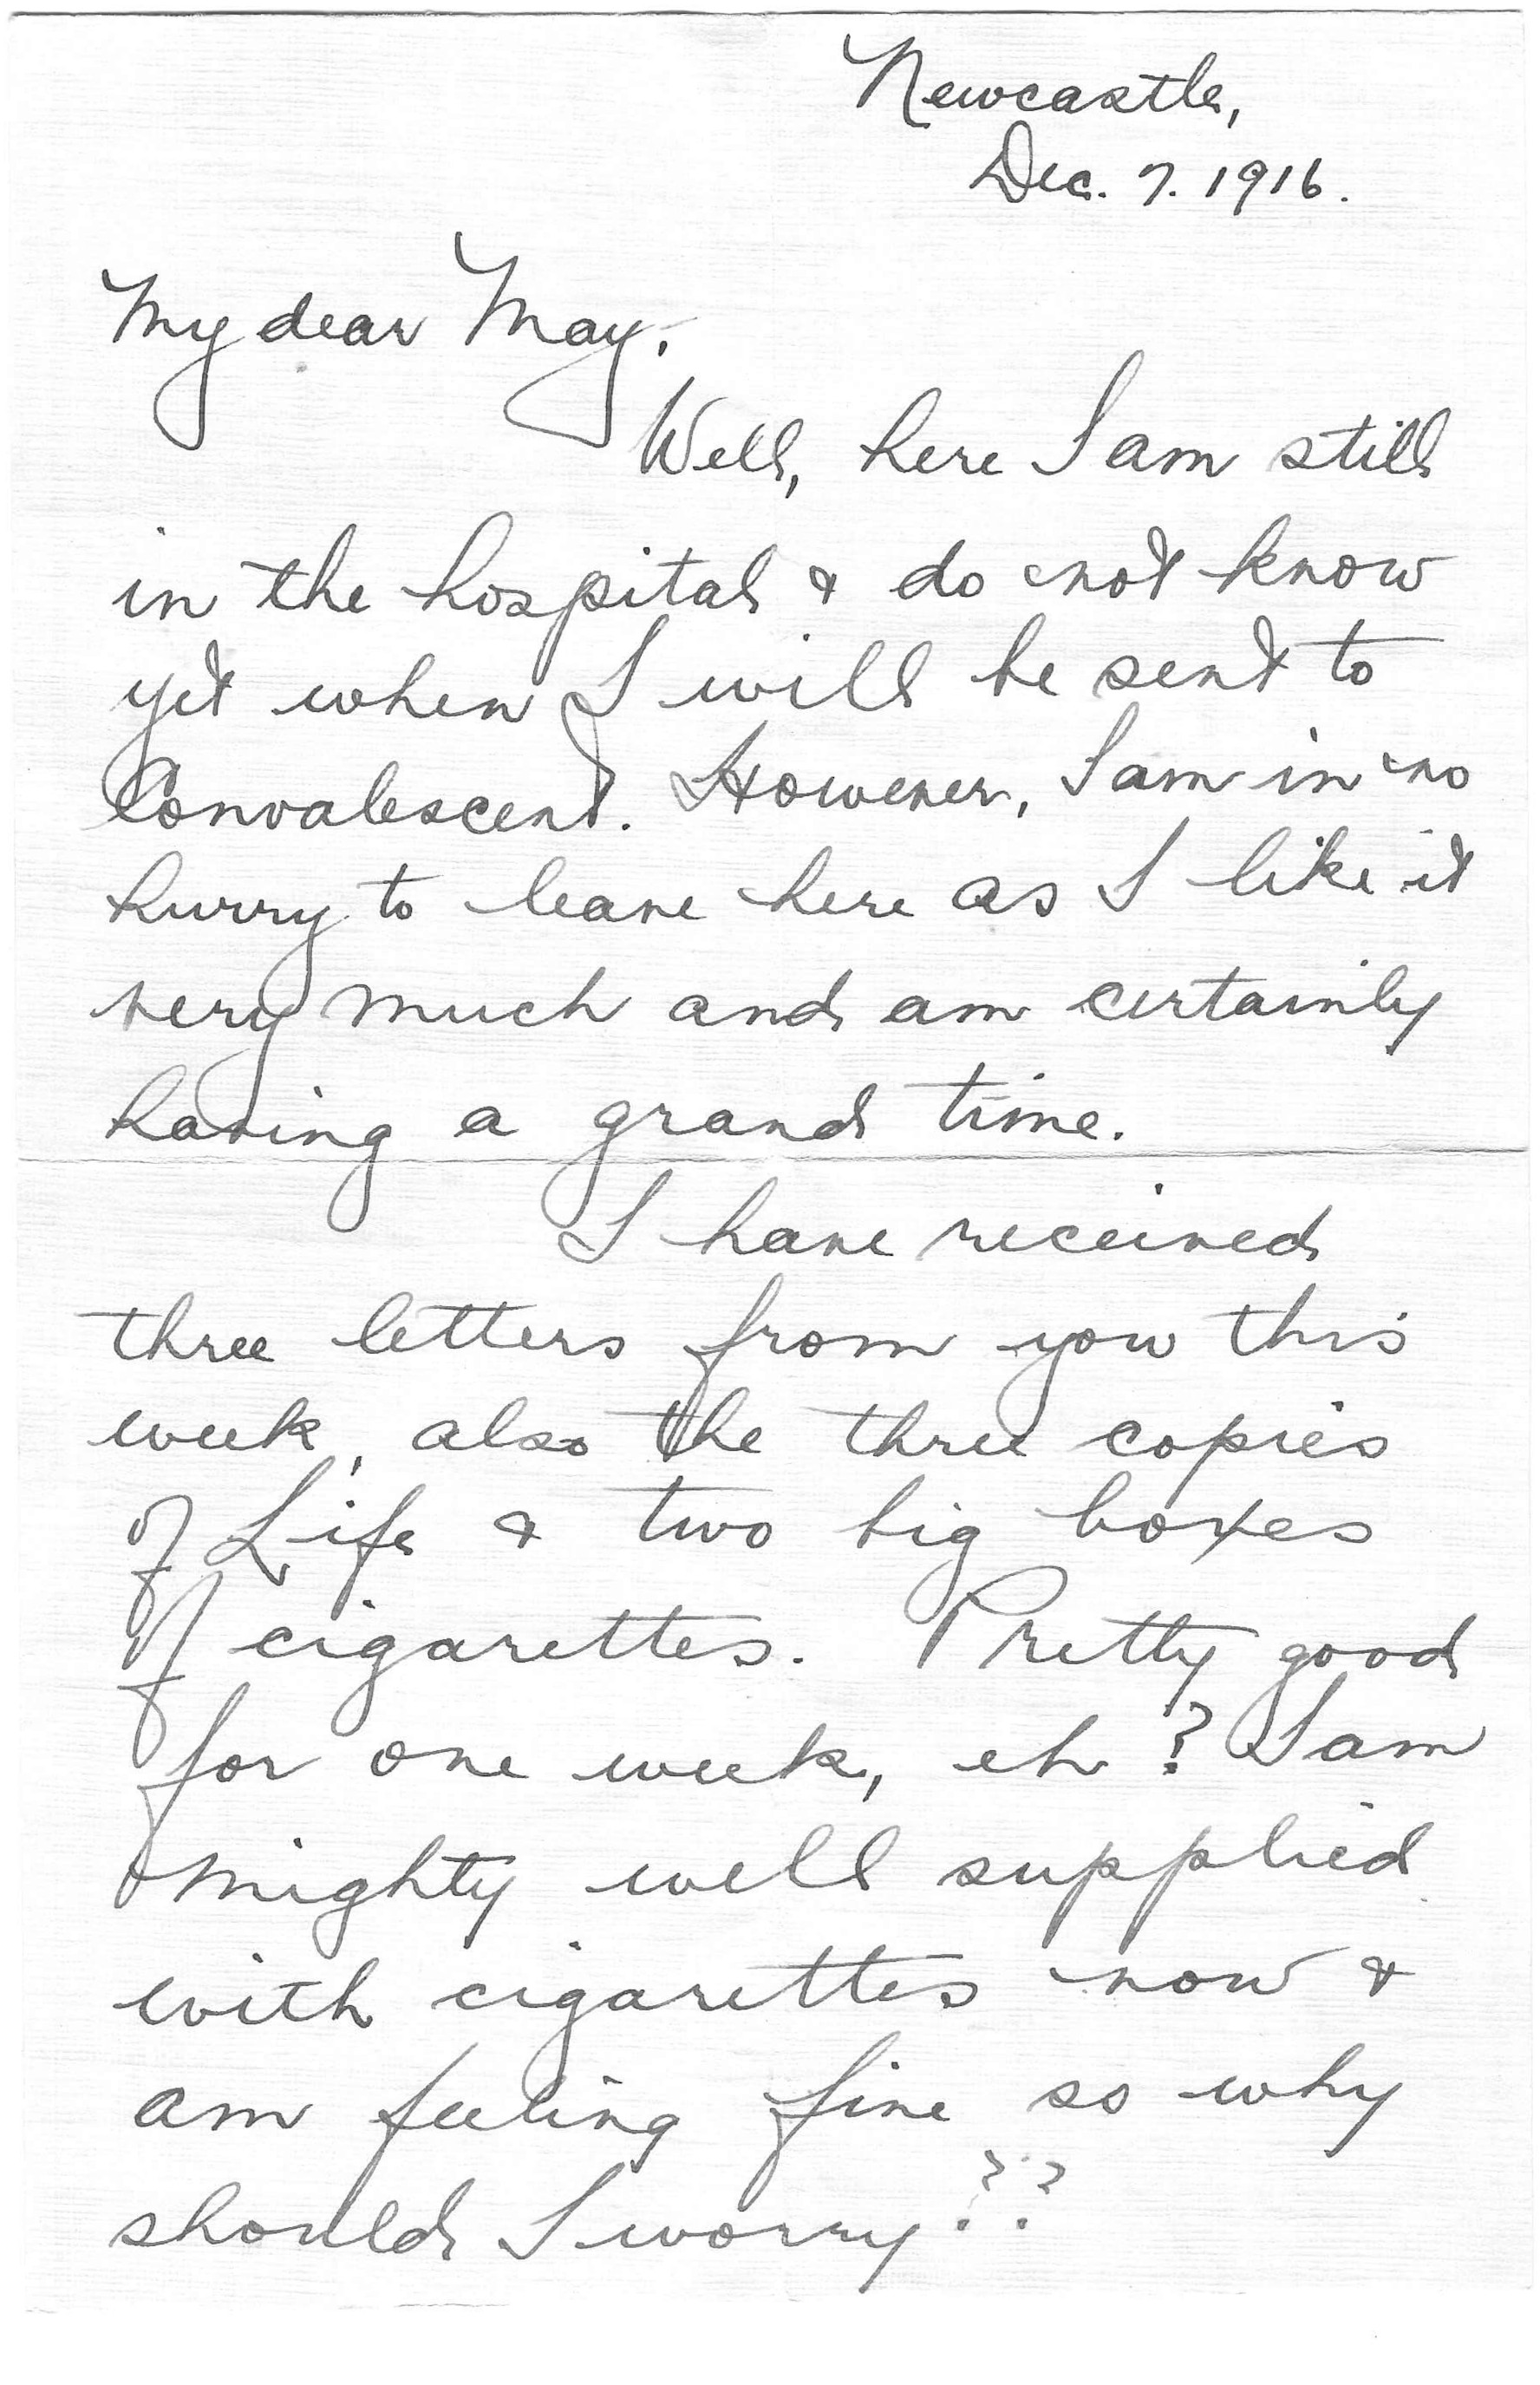 Newcastle,
Dec. 7. 1916.
My dear May,
Well, here I am still
in the hospital & do not know
yet when I will be sent to
Convalescent. However, I am in no
hurry to leave here as I like it
very much and am certainly
having a grand time.
I have received
three letters from you this
week, also the three copies
of Life & two big boxes
of cigarettes. Pretty good
for one week, eh? I am
mighty well supplied
with cigarettes now &
am feeling fine so why
should I worry??